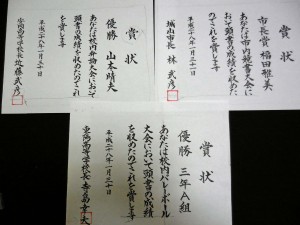 賞状
市長賞 福田雅美
あなたは市内競書大会に
おいて頭書の成績を収めた
のでこれを賞します
平成二十八年一月三十日
城山市長 林 武彦
賞状
優勝 山本晴夫
あなたは校内弁論大会にお
いて頭書の成績を収めたので
これを賞します
平成二十八年一月三十日
高等学校長 近藤武彦
賞状
優勝 三年A組
あなたは校内バレーボール
大会において頭書の成績
を収めたのでこれを賞します
平成二十八年一月三十日
高等学校長